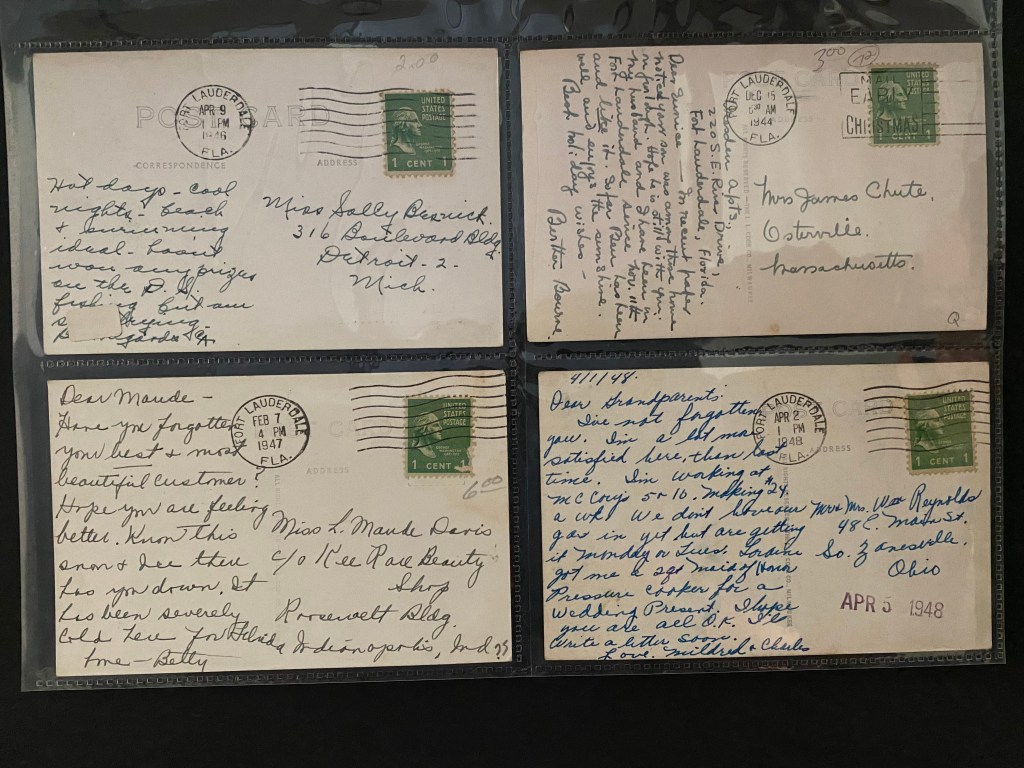 2.00
POST CARD
FORT LAUDERDALE
APR 9
1 PM
1946
FLA.
UNITED
STATES
POSTAGE
1 CENT 1
CORRESPONDENCE
ADDRESS
Hot days - cool
nights - beach
& swimming
ideal. Haven't
won any prizes
on the D. S.
fishing but am
trying -
Miss Sally
316 Boulevard Bldg.
Detroit - 2.
Mich.
300
FORT LAUDERDALE
DEC 15
AM
1944
FLA.
EARLY
CHRISTMAS
1 CENT 1
Apts.,
220 S. E. River Drive,
Fort Lauderdale, Florida.
Dear Eunice — In recent paper
noticed your son was away from home
on furlough. Hope he is still with you.
My husband and I have been in
Fort Lauderdale since Nov. 11th
and like it. Sister has been
well and enjoys the sunshine.
Best holiday wishes -
Bertha Bourne.
Mrs James Chute,
Osterville.
Massachusetts.
Q
FORT LAUDERDALE
FEB 7
4 PM
1947
FLA.
UNITED
STATES
POSTAGE
1 CENT 1
ADDRESS
6.00
Dear Maude -
Have you forgotten
your best & most
beautiful customer?
Hope you are feeling
better. Know this
snow & Ice there
has you down. It
has been severely
cold here for Florida
time - Betty
Miss L. Maude Davis
c/o Kee Rae Beauty
Shop
Roosevelt Bldg.
Indianapolis, Ind
4/1/48.
CARD
FORT LAUDERDALE
APR 2
1 PM
1948
FLA.
UNITED
STATES
POSTAGE
1 CENT 1
ADDRESS
Dear Grandparents:
I've not forgotten
you. I'm a lot more
satisfied here, then last
time. I'm working at
McCoys 5 & 10. Making $24
a wk. We don't have our
gas in yet but are getting
it Monday or Tues.
got me a 2qt Maid of Honor
Pressure cooker for a
Wedding Present. I hope
you are all O.K. I'll
write a letter soon.
Love. Mildred & Charles
Mr & Mrs. Wm Reynolds
48 E. Main St.
So. Zanesville,
Ohio
APR 5 1948